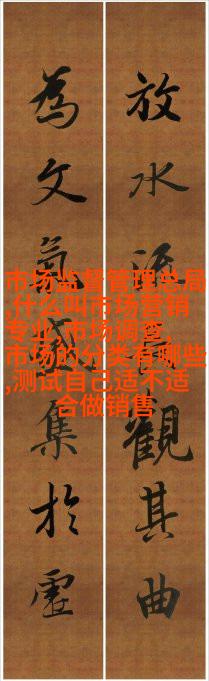 放水觀其曲
為文氣集於虛
市场监督管理总局
,什么叫市场营销
专业,市场调查,
市场的分类有哪些
,测试自己适不适
合做销售